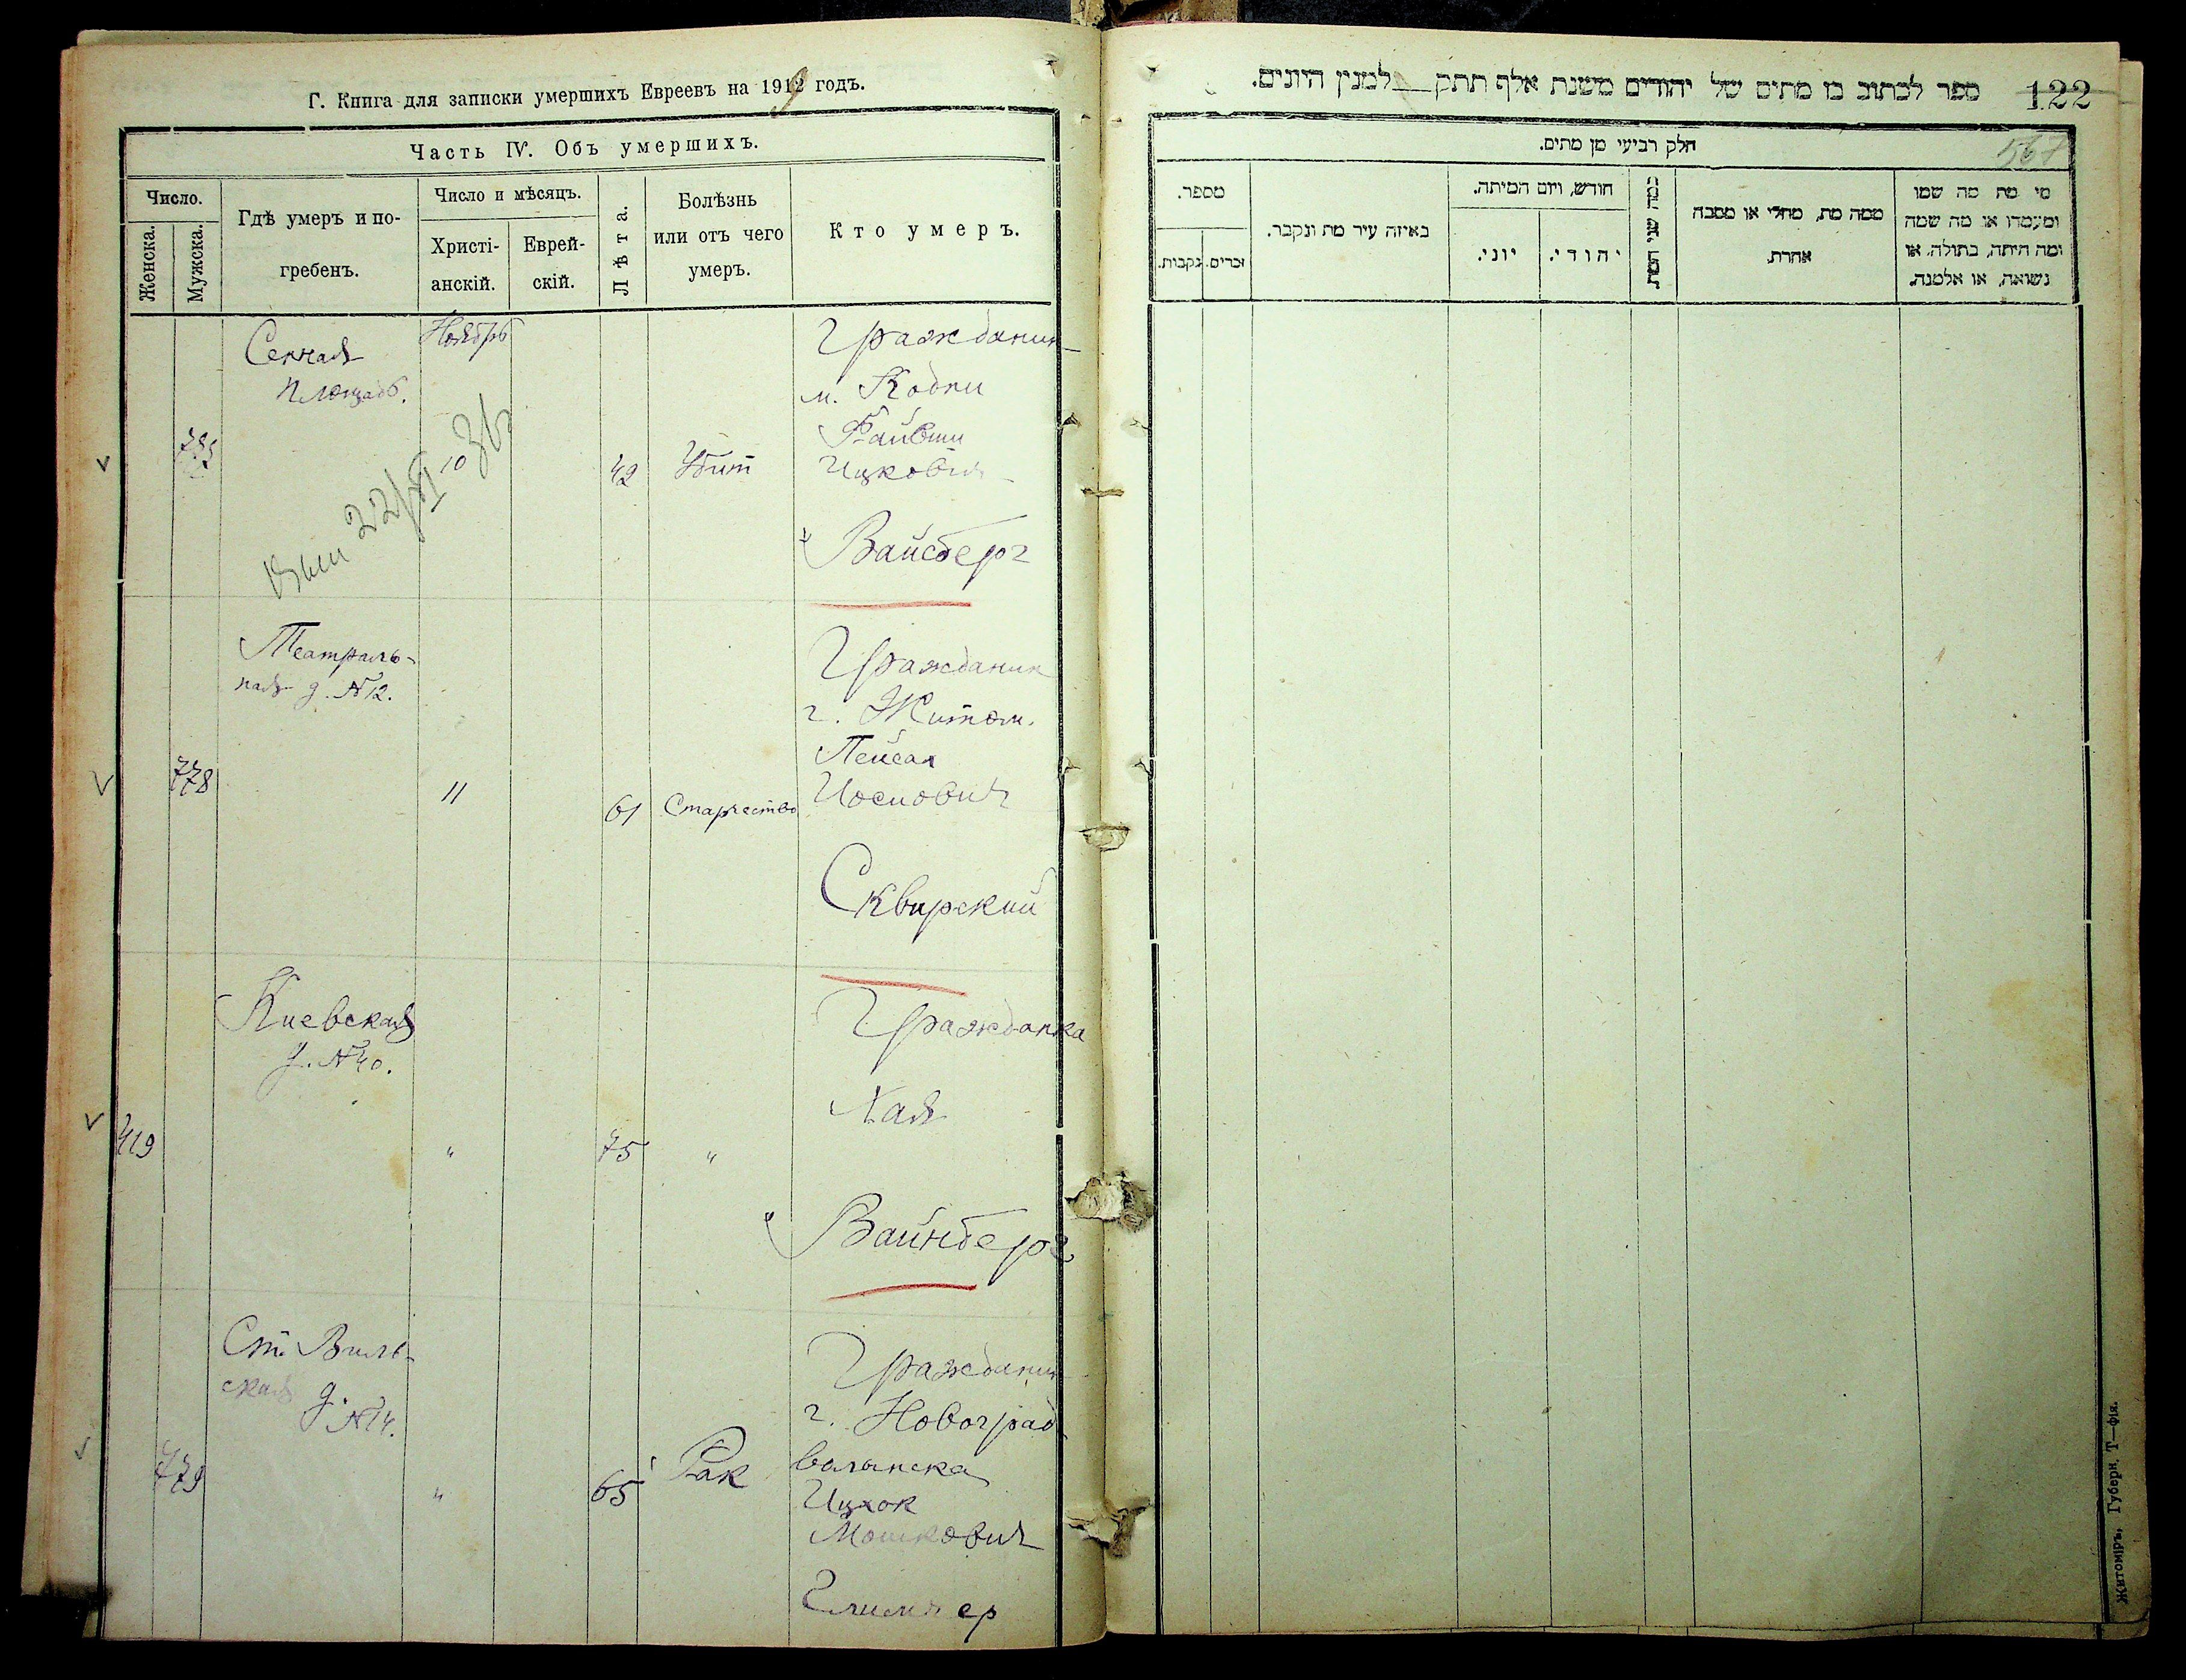 Г. Книга для записки умершихъ Евреевъ на 1919 годъ.
Часть IV. Объ умершихъ.
Число.
Женска.
Мужска.
Гдѣ умеръ и по-
гребенъ.
Число и мѣсяцъ.
Христі-
анскій.
Еврей-
скій.
Лѣта.
Болѣзнь
или отъ чего
умеръ.
Кто умеръ.
Сенная
площадь.
Ноябрь
42
Убит
Гражданин
м. Кодни
Файвиш
Ицкович
Вайсберг
22/XI-36
Театраль-
ная д. № 12.
778
11
61
Старчество
Гражданин
г. Житом.
Пейсах
Иосиович
Сквирский
Киевская
д. № 40.
419
"
75
"
Гражданка
Хая
Вайнберг
Ст. Виль-
ская д.
№ 14.
779
"
65
Рак
Гражданин
г. Новоград
волынска
Ицхок
Мошкович
ספר לכתוב בו מתים של יהודים משנת אלף תתק למנין היונים.
122
567
חלק רביעי מן מתים.
מספר.
נקבות.
זכרים.
באיזה עיר מת ונקבר.
חודש, ויום המיתה.
יוני.
יהודי.
כמה שני המת
ממה מת, מחלי או מסבה
אחרת.
מי מת מה שמו
ומעמדו או מה שמה
ומה היתה, בתולה, או
נשואה, או אלמנה.
Житоміръ, Губерн. Т—фія.